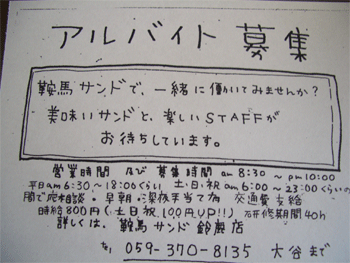 アルバイト募集
鞍馬サンドで、一緒に働いてみませんか?
美味いサンドと、楽しいSTAFFが
お待ちしています。
営業時間 及び 募集時間 am 8:30 ~ pm 10:00
平日am 6:30 ~ 18:00くらい 土・日・祝 am 6:00 ~ 23:00くらいの
間で応相談・早朝・深夜手当て有 交通費支給
時給800円(土日祝100円UP!!) 研修期間40h
詳しくは、鞍馬サンド 鈴鹿店
059-370-8135 大谷まで